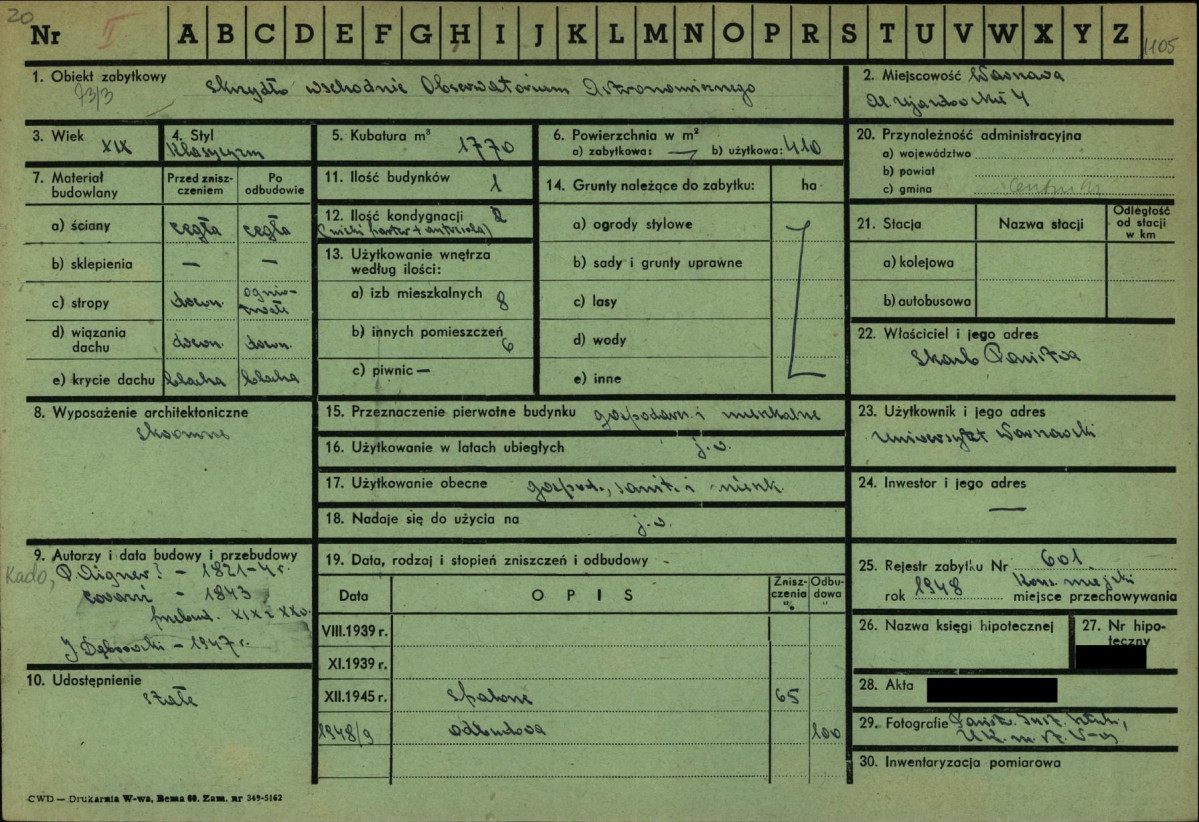 20
Nr II A B C D E F G H I J K L M N O P R S T U V W X Y Z 1105
1. Obiekt zabytkowy Skrzydło wschodnie Obserwatorium Astronomicznego
73/3
2. Miejscowość Warszawa
Al. Ujazdowskie 4
3. Wiek XIX
4. Styl
Klasycyzm
5. Kubatura m³ 1770
6. Powierzchnia w m²
a) zabytkowa: — b) użytkowa: 410
7. Materiał budowlany
Przed zniszczeniem
Po odbudowie
a) ściany cegła cegła
b) sklepienia — —
c) stropy drewn. ognio-
trwałe
d) wiązania dachu drewn. drewn.
e) krycie dachu blacha blacha
8. Wyposażenie architektoniczne
skromne
9. Autorzy i data budowy i przebudowy
Kado, P. Aigner? — 1821-4 r.
Corazzi — 1843
przebud. XIX i XX w.
J. Dąbrowski — 1947 r.
10. Udostępnienie
stałe
11. Ilość budynków 1
12. Ilość kondygnacji 2
(niski parter + antresola)
13. Użytkowanie wnętrza
według ilości:
a) izb mieszkalnych 8
b) innych pomieszczeń 6
c) piwnic —
14. Grunty należące do zabytku: ha
a) ogrody stylowe
b) sady i grunty uprawne
c) lasy
d) wody
e) inne
15. Przeznaczenie pierwotne budynku gospodarn. i mieszkalne
16. Użytkowanie w latach ubiegłych j.w.
17. Użytkowanie obecne gospod., sanit. i mieszk.
18. Nadaje się do użycia na j.w.
19. Data, rodzaj i stopień zniszczeń i odbudowy
Data OPIS Zniszczenia % Odbudowa "
VIII.1939 r.
XI.1939 r.
XII.1945 r. Spalone 65
1948/9 odbudowa 100
20. Przynależność administracyjna
a) województwo
b) powiat
c) gmina
21. Stacja Nazwa stacji Odległość od stacji w km
a) kolejowa
b) autobusowa
22. Właściciel i jego adres
Skarb Państwa
23. Użytkownik i jego adres
Uniwersytet Warszawski
24. Inwestor i jego adres
—
25. Rejestr zabytku Nr 601
rok 1948 Kons. miejski
miejsce przechowywania
26. Nazwa księgi hipotecznej
27. Nr hipoteczny
28. Akta
29. Fotografie Państ. Inst. Sztuki,
30. Inwentaryzacja pomiarowa
CWD — Drukarnia W-wa, Bema 60. Zam. nr 349-5162